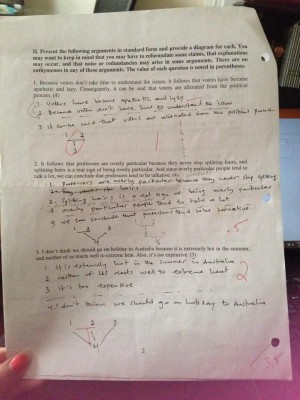 II. Present the following arguments in standard form and provide a diagram for each. You
may want to keep in mind that you may have to reformulate some claims, that explanations
may occur, and that noise or redundancies may arise in some arguments. There are no
enthymemes in any of these arguments. The value of each question is noted in parentheses.
1. Because voters don't take time to understand the issues, it follows that voters have become
apathetic and lazy. Consequently, it can be said that voters are alienated from the political
process. (4)
1. Voters have become apathetic and lazy
2 Because voters don't have time to understand the issues
3 it can be said that voters are alienated from the political process
1
2
3
1
2. It follows that professors are overly particular because they never stop splitting hairs, and
splitting hairs is a real sign of being overly particular. And since overly particular people tend to
talk a lot, we can conclude that professors tend to be talkative. (4)
1. Professors are overly particular because they never stop splitting
hairs
2. Splitting hairs is a real sign of being overly particular
3. overly particular people tend to talk a lot
4 we can conclude that professors tend to be talkative.
1
2
3
4
.5
3. I don't think we should go on holiday to Australia because it is extremely hot in the summer,
and neither of us reacts well to extreme heat. Also, it's too expensive. (3)
1 it is extremely hot in the summer in Australia
2 neither of us reacts well to extreme heat
3 it's too expensive
2
4. I don't think we should go on holiday to Australia
1
2
3
4
2
3.5